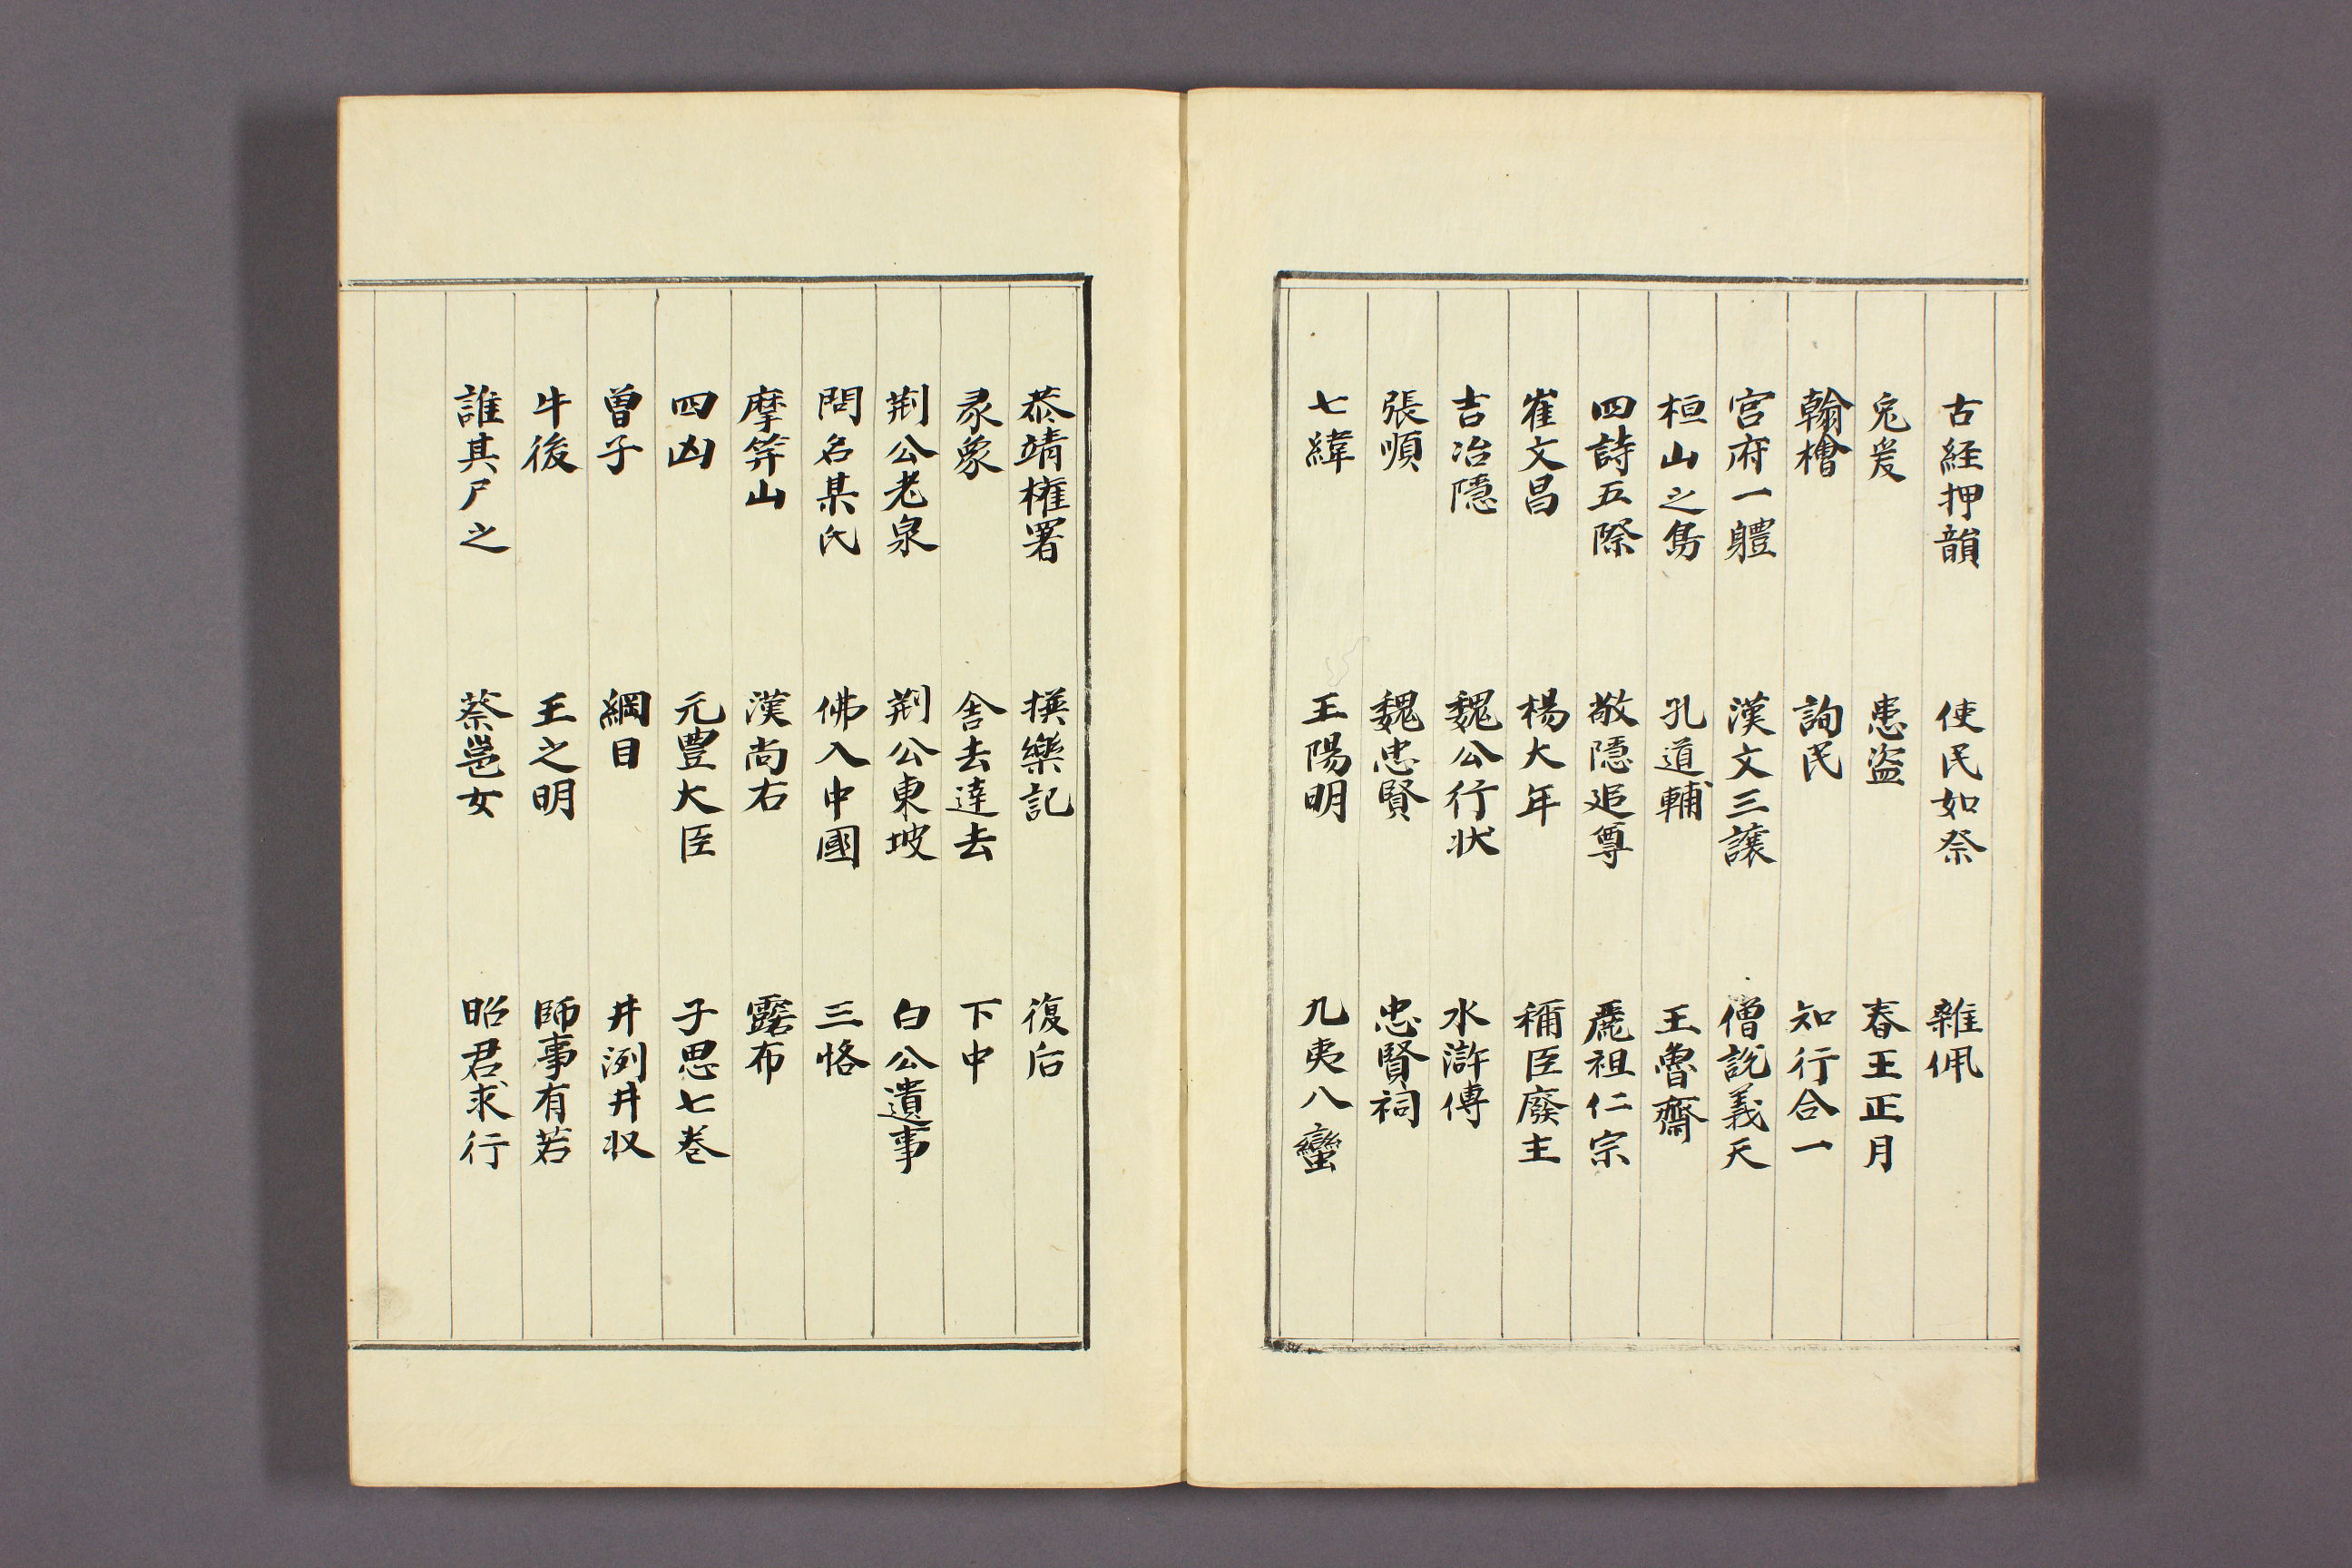 古経押韻 使民如祭 雜佩
兎爰 患盗 春王正月
翰檜 詢民 知行合一
宮府一軆 漢文三讓 僧説義天
桓山之雋 孔道輔 王魯齋
四詩五際 敬隱追尊 麗祖仁宗
崔文昌 楊大年 稱臣廢主
吉冶隱 魏公行狀 水滸傳
張順 魏忠賢 忠賢祠
七緯 王陽明 九夷八蠻
恭靖權署 撰樂記 復后
彖象 舎去逹去 下中
荆公老泉 荆公東坡 白公遺事
問名某氏 佛入中國 三恪
摩笄山 漢尚右 露布
四凶 元豊大臣 子思七巻
曽子 綱目 井洌井収
牛後 王之明 師事有若
誰其尸之 蔡邕女 昭君求行